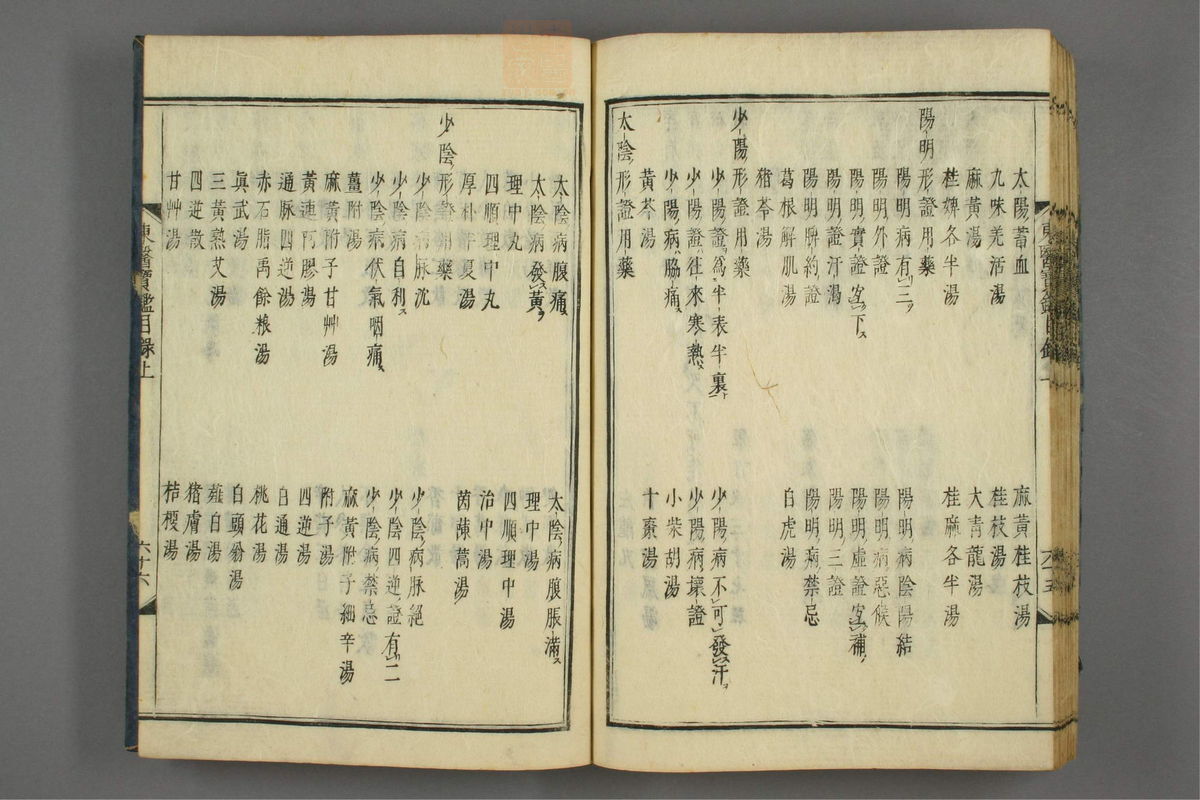 太陽蓄血
麻黃桂枝湯
九味羌活湯
桂枝湯
麻黃湯
大青龍湯
桂婢各半湯
桂麻各半湯
陽明形證用藥
陽明病有三
陽明病陰陽結
陽明外證
陽明病惡候
陽明實證宜下
陽明虛證宜補
陽明證汗渴
陽明三證
陽明脾約證
陽明病禁忌
葛根解肌湯
白虎湯
猪苓湯
少陽形證用藥
少陽證爲半表半裏
少陽病不可發汗
少陽證往來寒熱
少陽病壞證
少陽病脇痛
小柴胡湯
黃芩湯
十棗湯
太陰形證用藥
太陰病腹痛
太陰病腹脹滿
太陰病發黃
理中湯
理中丸
四順理中湯
四順理中丸
治中湯
厚朴半夏湯
茵蔯蒿湯
少陰形證用藥
少陰病脉沈
少陰病脉絕
少陰病自利
少陰四逆證有二
少陰病伏氣咽痛
少陰病禁忌
薑附湯
麻黃附子細辛湯
麻黃附子甘艸湯
附子湯
黃連阿膠湯
四逆湯
通脉四逆湯
白通湯
赤石脂禹餘粮湯
桃花湯
眞武湯
白頭翁湯
三黃熟艾湯
薤白湯
四逆散
猪膚湯
甘艸湯
桔梗湯
東醫寶鑑目錄上
六十六